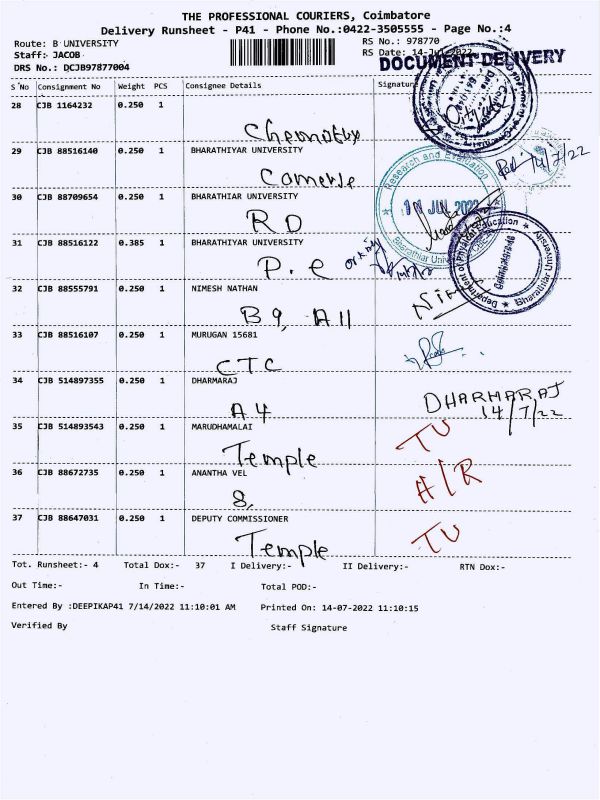 THE PROFESSIONAL COURIERS, Coimbatore
Delivery Runsheet - P41 - Phone No.:0422-3505555 - Page No.:4
Route: B UNIVERSITY
RS No.: 978770
Staff: JACOB
RS Date: 14-Jul-2022
DOCUMENT DELIVERY
DRS No.: DCJB97877004
S No Consignment No Weight PCS Consignee Details Signature
28 CJB 1164232 0.250 1
29 CJB 88516140 0.250 1 BHARATHIYAR UNIVERSITY
14/7/22
30 CJB 88709654 0.250 1 BHARATHIYAR UNIVERSITY
RD
Research and Evaluation
JUL 2022
Bharathiar
31 CJB 88516122 0.385 1 BHARATHIYAR UNIVERSITY
P.e
Department of Physical Education
Bharathiar University
32 CJB 88555791 0.250 1 NIMESH NATHAN
B9, A11
33 CJB 88516107 0.250 1 MURUGAN 15681
CTC
34 CJB 514897355 0.250 1 DHARMARAJ
A4
DHARMARAJ
14/7/22
35 CJB 514893543 0.250 1 MARUDHAMALAI
Temple
TU
36 CJB 88672735 0.250 1 ANANTHA VEL
8,
A/R
37 CJB 88647031 0.250 1 DEPUTY COMMISSIONER
Temple
TU
Tot. Runsheet:- 4 Total Dox:- 37 I Delivery:- II Delivery:- RTN Dox:-
Out Time:- In Time:- Total POD:-
Entered By :DEEPIKAP41 7/14/2022 11:10:01 AM Printed On: 14-07-2022 11:10:15
Verified By Staff Signature